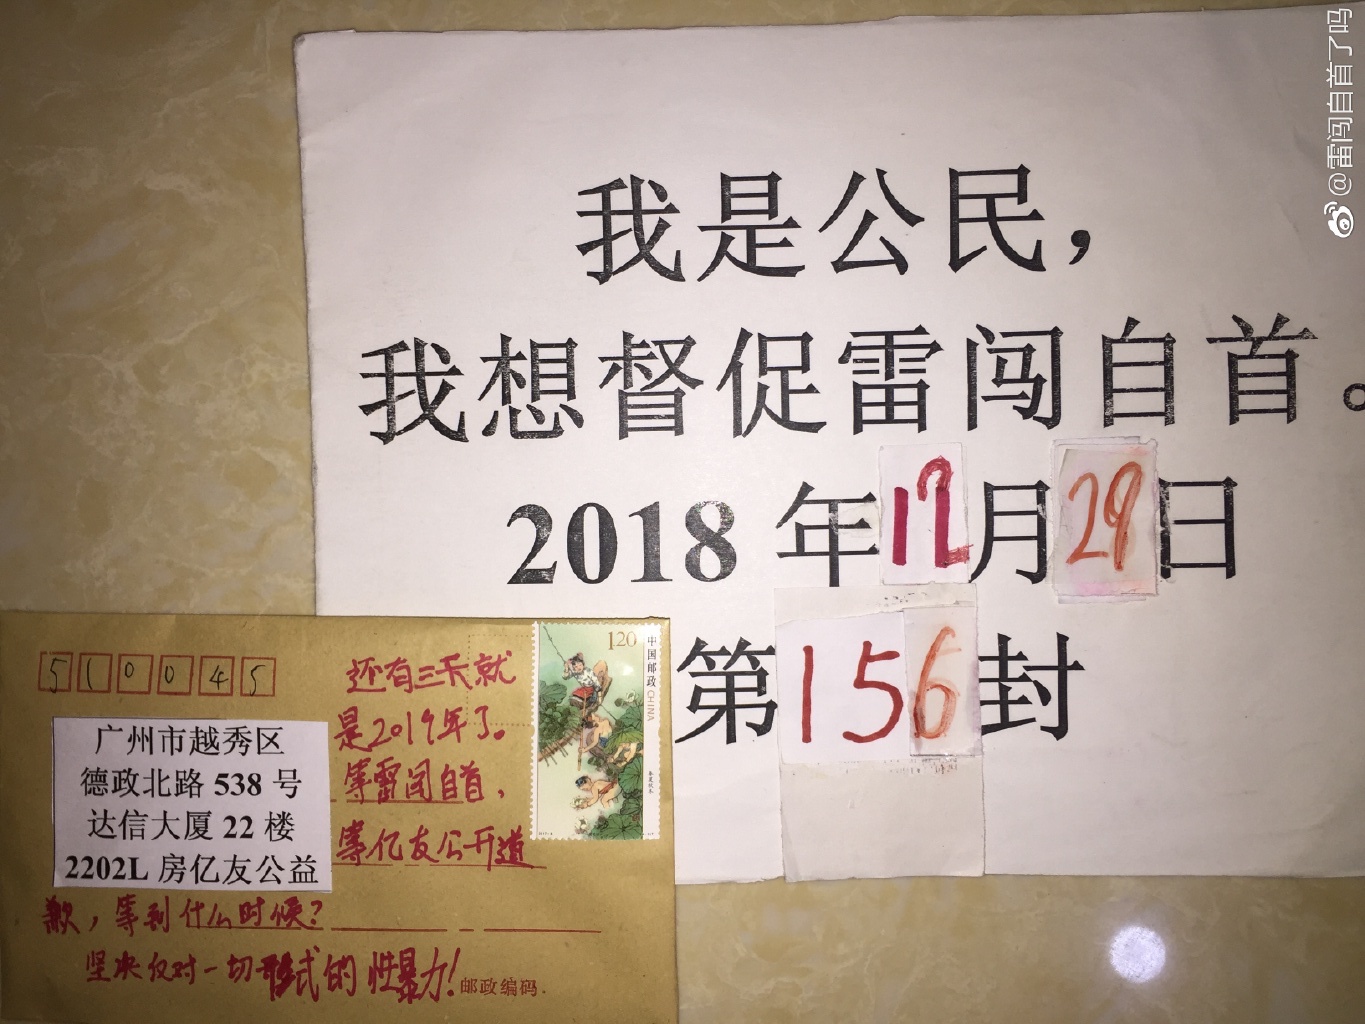 我是公民，
我想督促雷闯自首。
2018年12月29日
第156封
510045
广州市越秀区
德政北路 538 号
达信大厦 22 楼
2202L 房亿友公益
还有三天就
是2019年了。
等雷闯自首，
等亿友公开道
歉，等到什么时候？
坚决反对一切形式的性暴力！
邮政编码
1.20
中国邮政
CHINA
@雷闯自首了吗